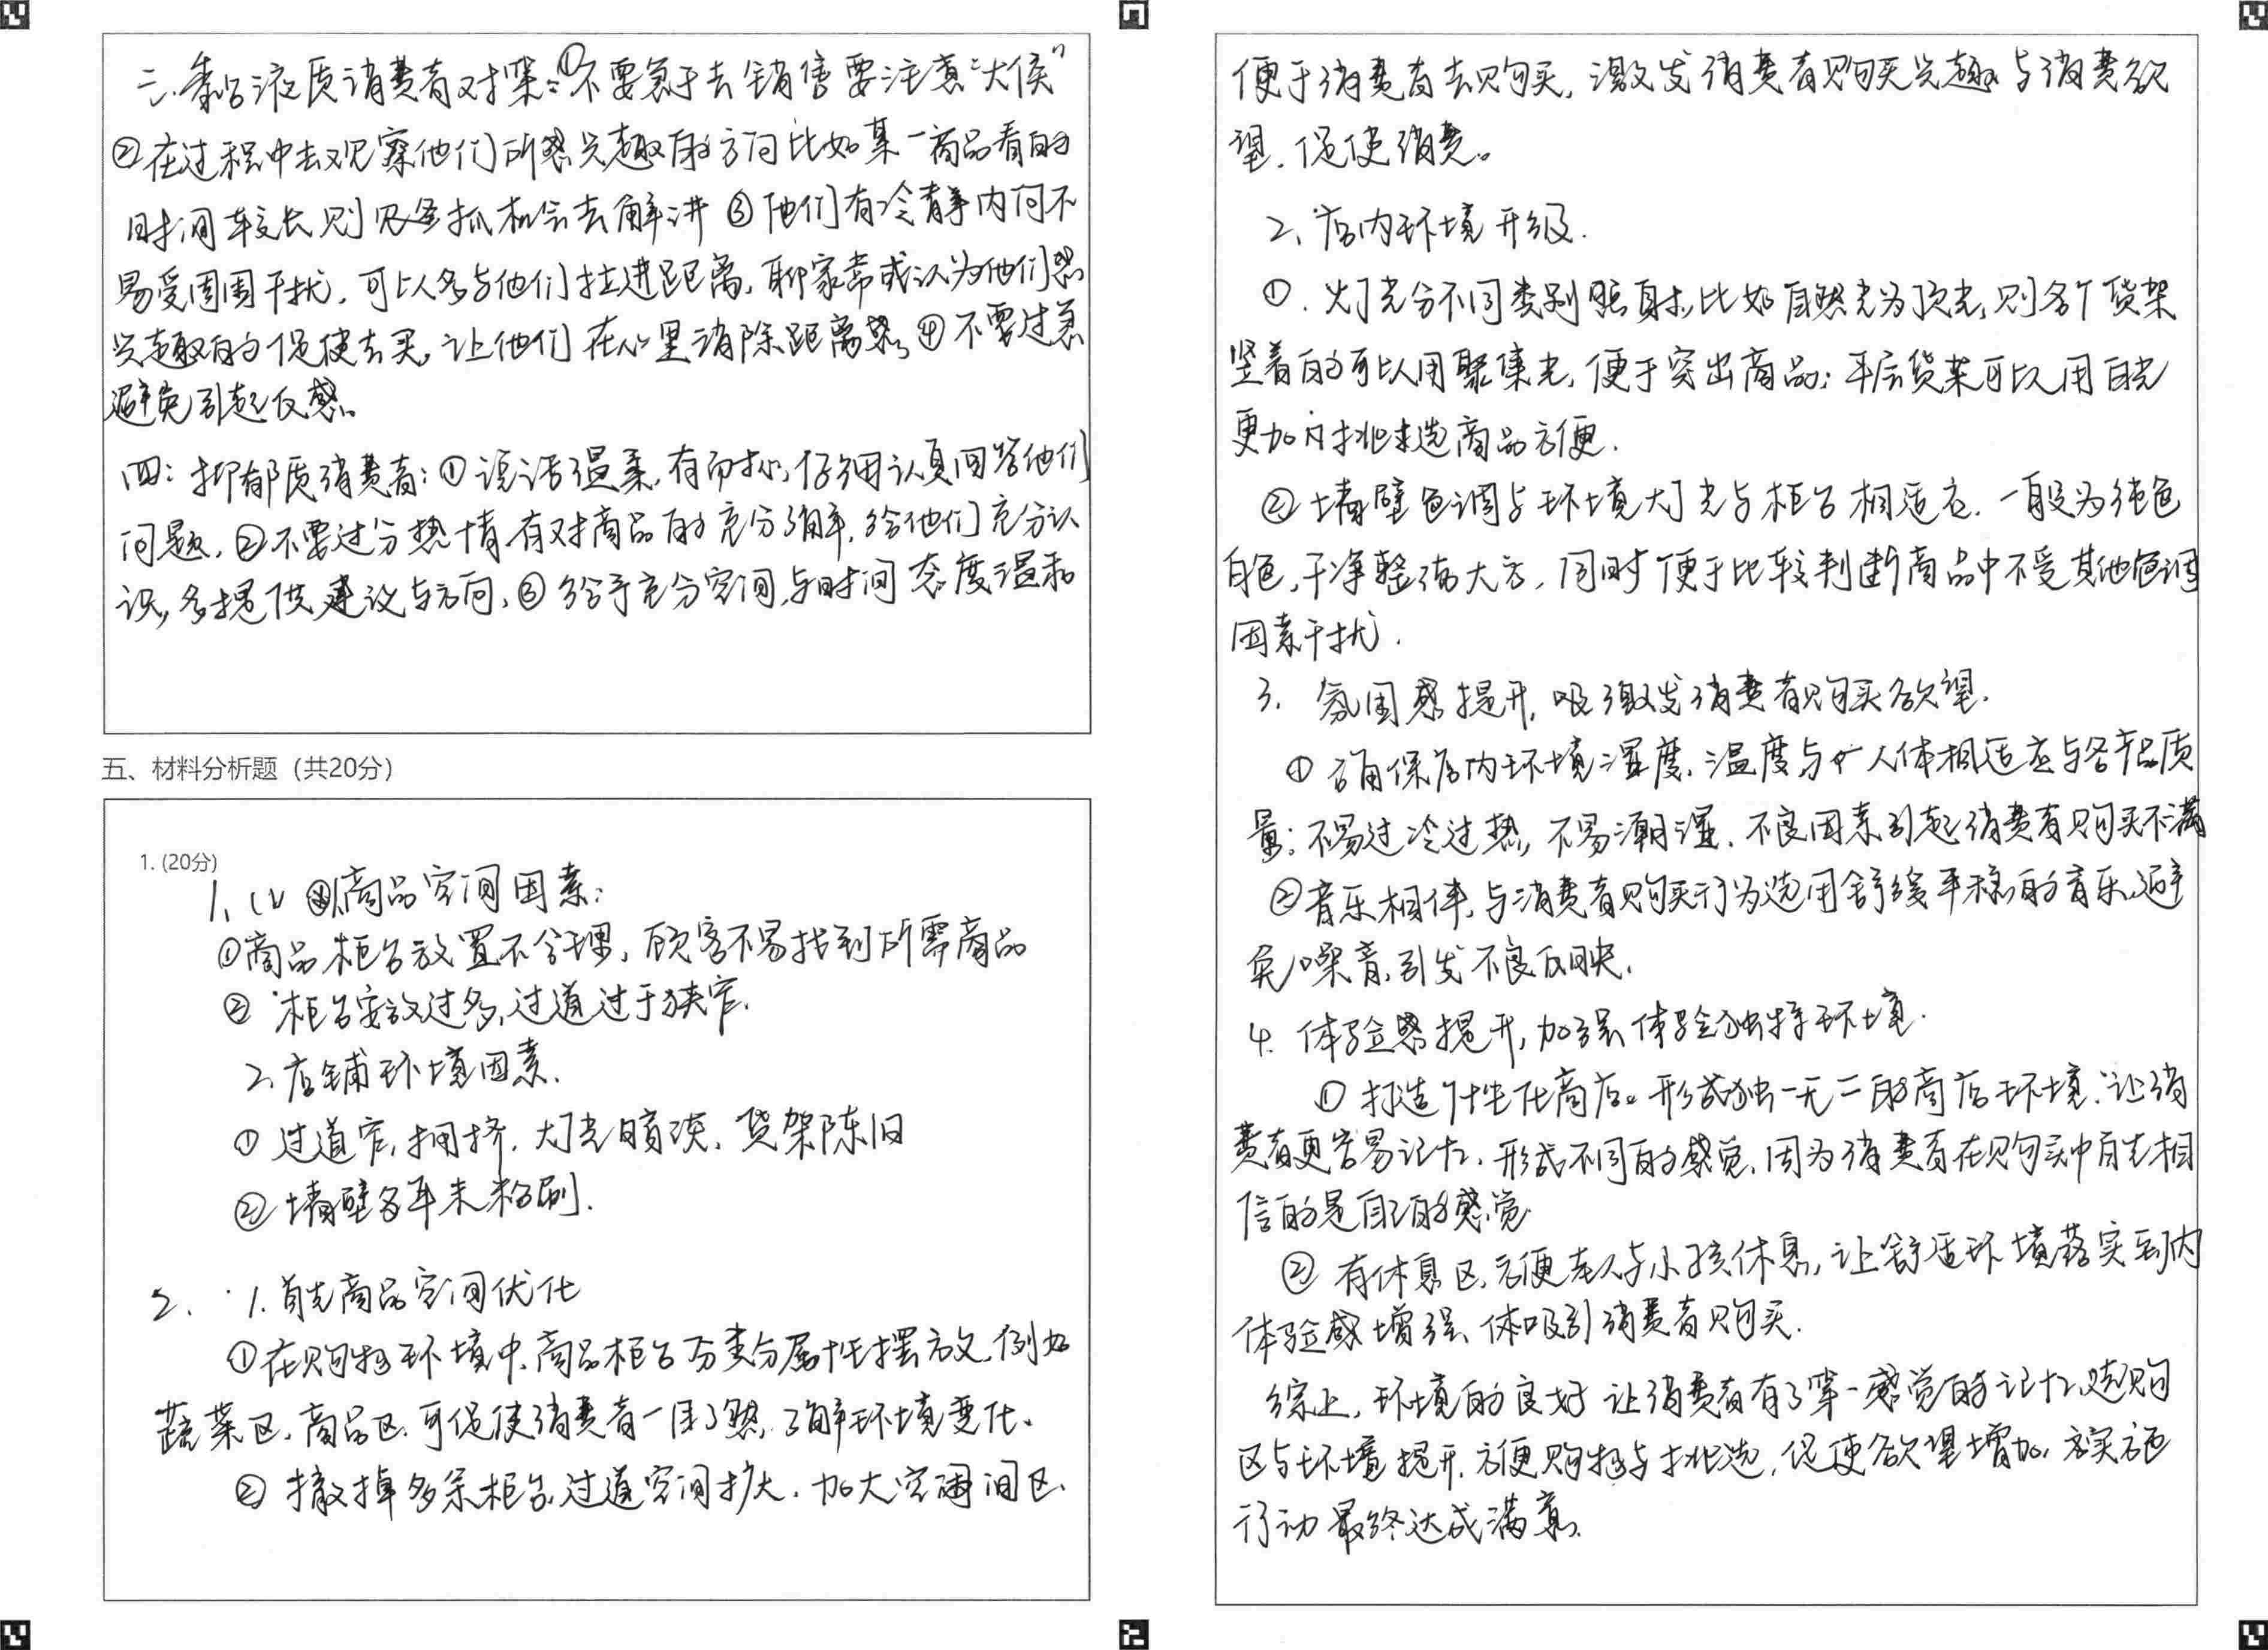 三.黏液质消费者对策:①不要急于去销售要注意“火候”
②在过程中去观察他们所感兴趣的方向比如某一商品看的
时间较长则 抓机会去解讲 ③他们有冷静内向不
易受周围干扰,可以多与他们拉进距离,聊家常或认为他们感
兴趣的促使去买,让他们在心里消除距离感,④不要过急
避免引起反感。
四:抑郁质消费者:①说话温柔,有耐心,仔细认真回答他们
问题,②不要过分热情,有对商品的充分了解,给他们充分认
识,多提供建议与方向,③给予充分空间,与时间 态度温和
五、材料分析题(共20分)
1.(20分)
1、(1) 1.商品空间因素:
①商品柜台放置不合理,顾客不易找到所需商品
②柜台安放过多,过道过于狭窄.
2、店铺环境因素.
①过道窄,拥挤,灯光暗淡,货架陈旧
②墙壁多年未粉刷.
2. 1.首先商品空间优化
①在购物环境中,商品柜台分类分属性摆放,例如
蔬菜区,商品区,可促使消费者一目了然,了解环境变化。
②撤掉多余柜台,过道空间扩大,加大空间区,
便于消费者去购买,激发消费者购买兴趣与消费欲
望,促使消费。
2、店内环境升级.
①.灯光分不同类别照射,比如自然光为顶光,则各个货架
竖着的可以用聚集光,便于突出商品;平层货架可以用白光
更加 挑选商品方便.
②墙壁色调与环境灯光与柜台相适应,一般为纯色
白色,干净整洁大方,同时便于比较判断商品中不受其他色调
因素干扰.
3、氛围感提升,吸激发消费者购买欲望.
①确保店内环境湿度、温度与个人体相适应与各产品质
量;不易过冷过热,不易潮湿,不良因素引起消费者购买不满
②音乐相伴,与消费者购买行为选用舒缓平稳的音乐,避
免噪音,引发不良反映.
4.体验感提升,加强体验独特环境.
①打造个性化商店。形成独一无二的商店环境,让消
费者更容易记忆,形成不同的感觉,因为消费者在购买中首先相
信的是自己的感觉
②有休息区,方便老人与小孩休息,让舒适环境落实到内
体验感增强、体吸引消费者购买.
综上,环境的良好让消费者有了第一感觉的记忆,选购
区与环境提升,方便购物与挑选,促使欲望增加,
行动最终达成满意.